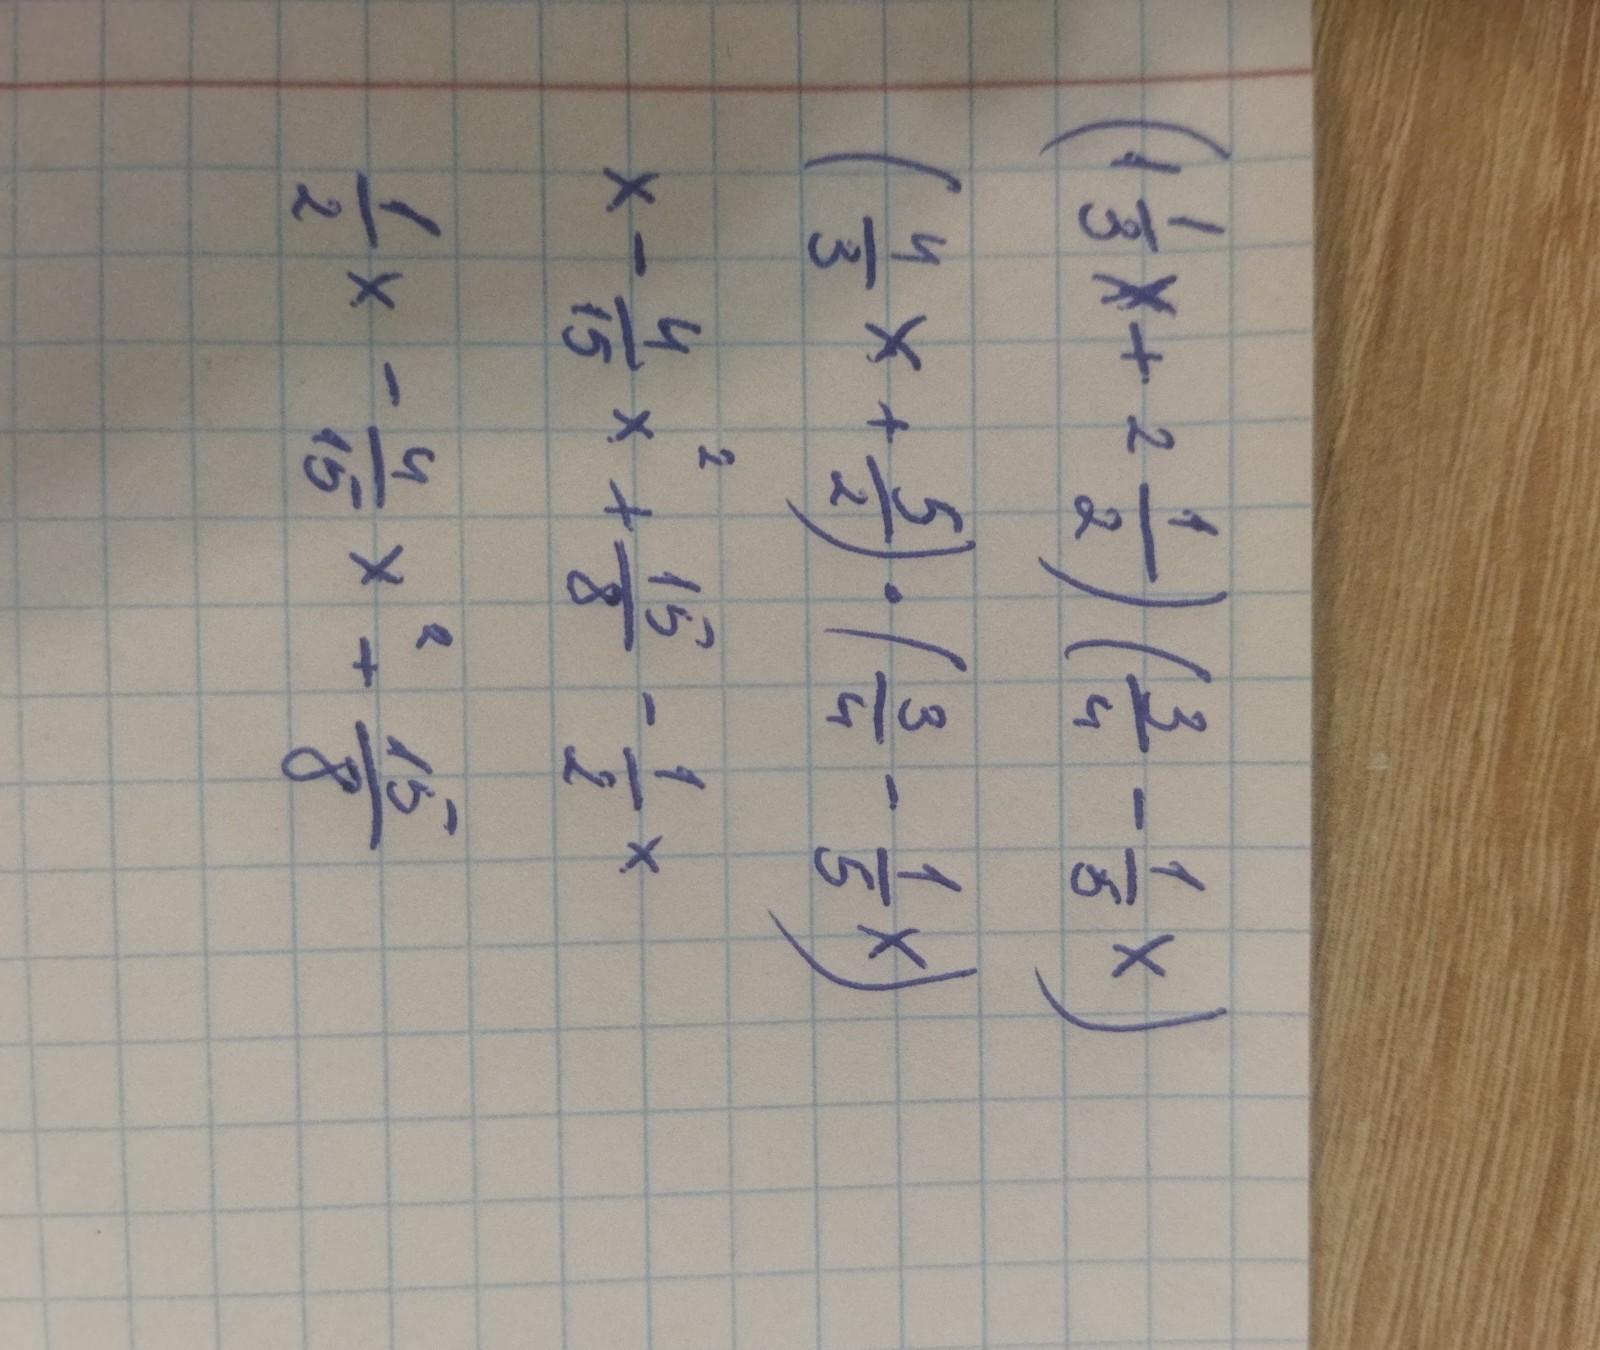 (1 1/3 x + 2 1/2) (3/4 - 1/5 x)
(4/3 x + 5/2) · (3/4 - 1/5 x)
x - 4/15 x² + 15/8 - 1/2 x
1/2 x - 4/15 x² + 15/8